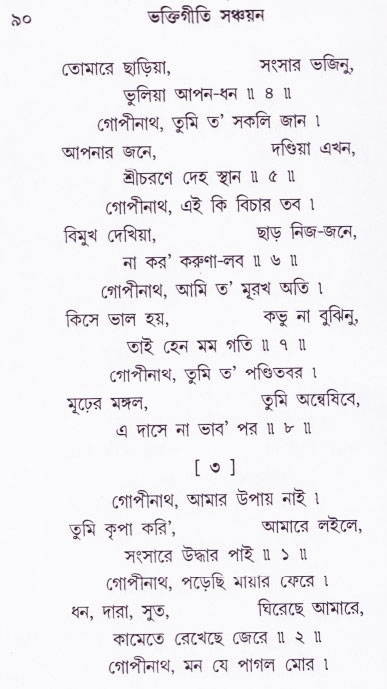 ৯০ ভক্তিগীতি সঞ্চয়ন
তোমারে ছাড়িয়া, সংসার ভজিনু,
ভুলিয়া আপন-ধন ॥ ৪ ॥
গোপীনাথ, তুমি ত’ সকলি জান ।
আপনার জনে, দণ্ডিয়া এখন,
শ্রীচরণে দেহ স্থান ॥ ৫ ॥
গোপীনাথ, এই কি বিচার তব ।
বিমুখ দেখিয়া, ছাড় নিজ-জনে,
না কর’ করুণা-লব ॥ ৬ ॥
গোপীনাথ, আমি ত’ মূরখ অতি ।
কিসে ভাল হয়, কভু না বুঝিনু,
তাই হেন মম গতি ॥ ৭ ॥
গোপীনাথ, তুমি ত’ পণ্ডিতবর ।
মূঢ়ের মঙ্গল, তুমি অন্বেষিবে,
এ দাসে না ভাব’ পর ॥ ৮ ॥
[ ৩ ]
গোপীনাথ, আমার উপায় নাই ।
তুমি কৃপা করি’, আমারে লইলে,
সংসারে উদ্ধার পাই ॥ ১ ॥
গোপীনাথ, পড়েছি মায়ার ফেরে ।
ধন, দারা, সুত, ঘিরেছে আমারে,
কামেতে রেখেছে জেরে ॥ ২ ॥
গোপীনাথ, মন যে পাগল মোর ।